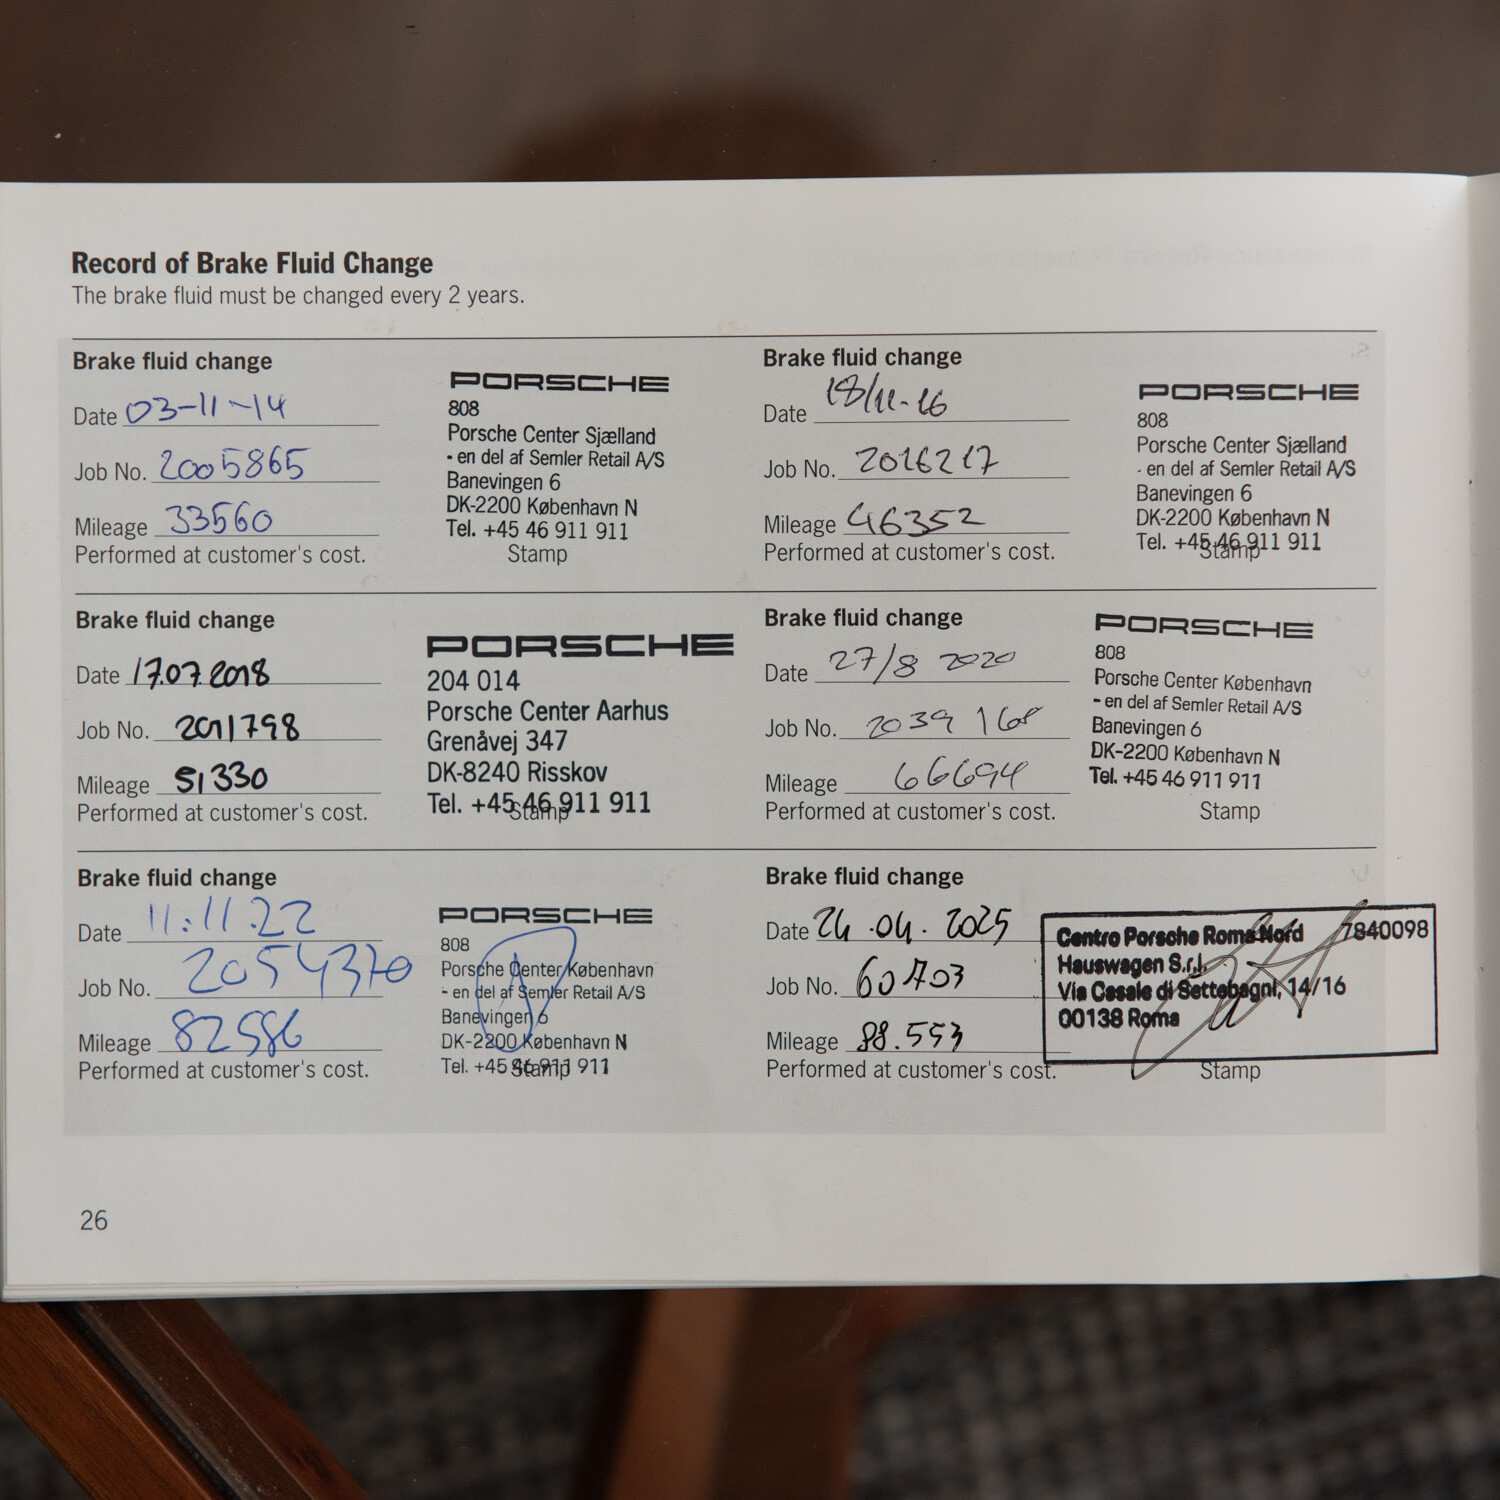 Record of Brake Fluid Change
The brake fluid must be changed every 2 years.
Brake fluid change
Date 03-11-14
Job No. 2005865
Mileage 33560
Performed at customer's cost.
PORSCHE
808
Porsche Center Sjælland
- en del af Semler Retail A/S
Banevingen 6
DK-2200 København N
Tel. +45 46 911 911
Stamp
Brake fluid change
Date 18/11-16
Job No. 2016217
Mileage 46352
Performed at customer's cost.
PORSCHE
808
Porsche Center Sjælland
- en del af Semler Retail A/S
Banevingen 6
DK-2200 København N
Tel. +45 46 911 911
Stamp
Brake fluid change
Date 17.07.2018
Job No. 2011798
Mileage 51330
Performed at customer's cost.
PORSCHE
204 014
Porsche Center Aarhus
Grenåvej 347
DK-8240 Risskov
Tel. +45 46 911 911
Stamp
Brake fluid change
Date 27/8 2020
Job No. 2039168
Mileage 66694
Performed at customer's cost.
PORSCHE
808
Porsche Center København
- en del af Semler Retail A/S
Banevingen 6
DK-2200 København N
Tel. +45 46 911 911
Stamp
Brake fluid change
Date 11.11.22
Job No. 2054370
Mileage 82586
Performed at customer's cost.
PORSCHE
808
Porsche Center København
- en del af Semler Retail A/S
Banevingen 6
DK-2200 København N
Tel. +45 46 911 911
Stamp
Brake fluid change
Date 24.04.2025
Job No. 60703
Mileage 88.553
Performed at customer's cost.
Centro Porsche Roma Nord 7840098
Hauswagen S.r.l.
Via Casale di Settebagni, 14/16
00138 Roma
Stamp
26